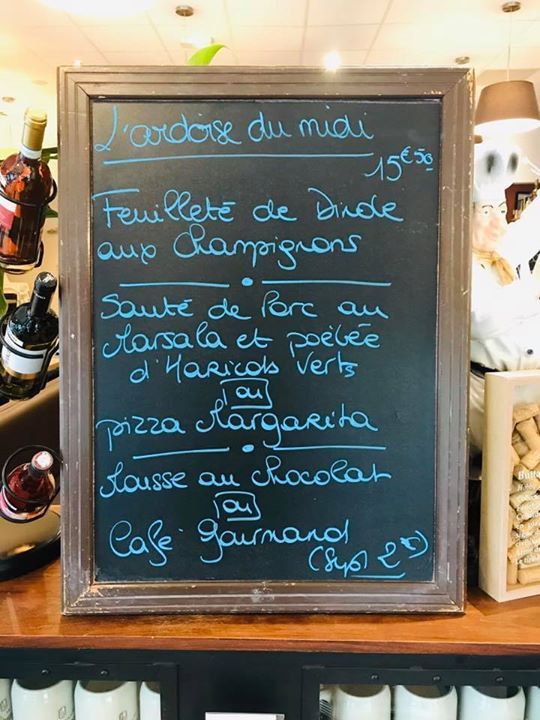 L'ardoise du midi
15€50
Feuilleté de Dinde
aux Champignons
Sauté de Porc au
Marsala et poêlée
d'Haricots Verts
ou
pizza Margarita
Mousse au Chocolat
ou
Café Gourmand
(Sup 2€)